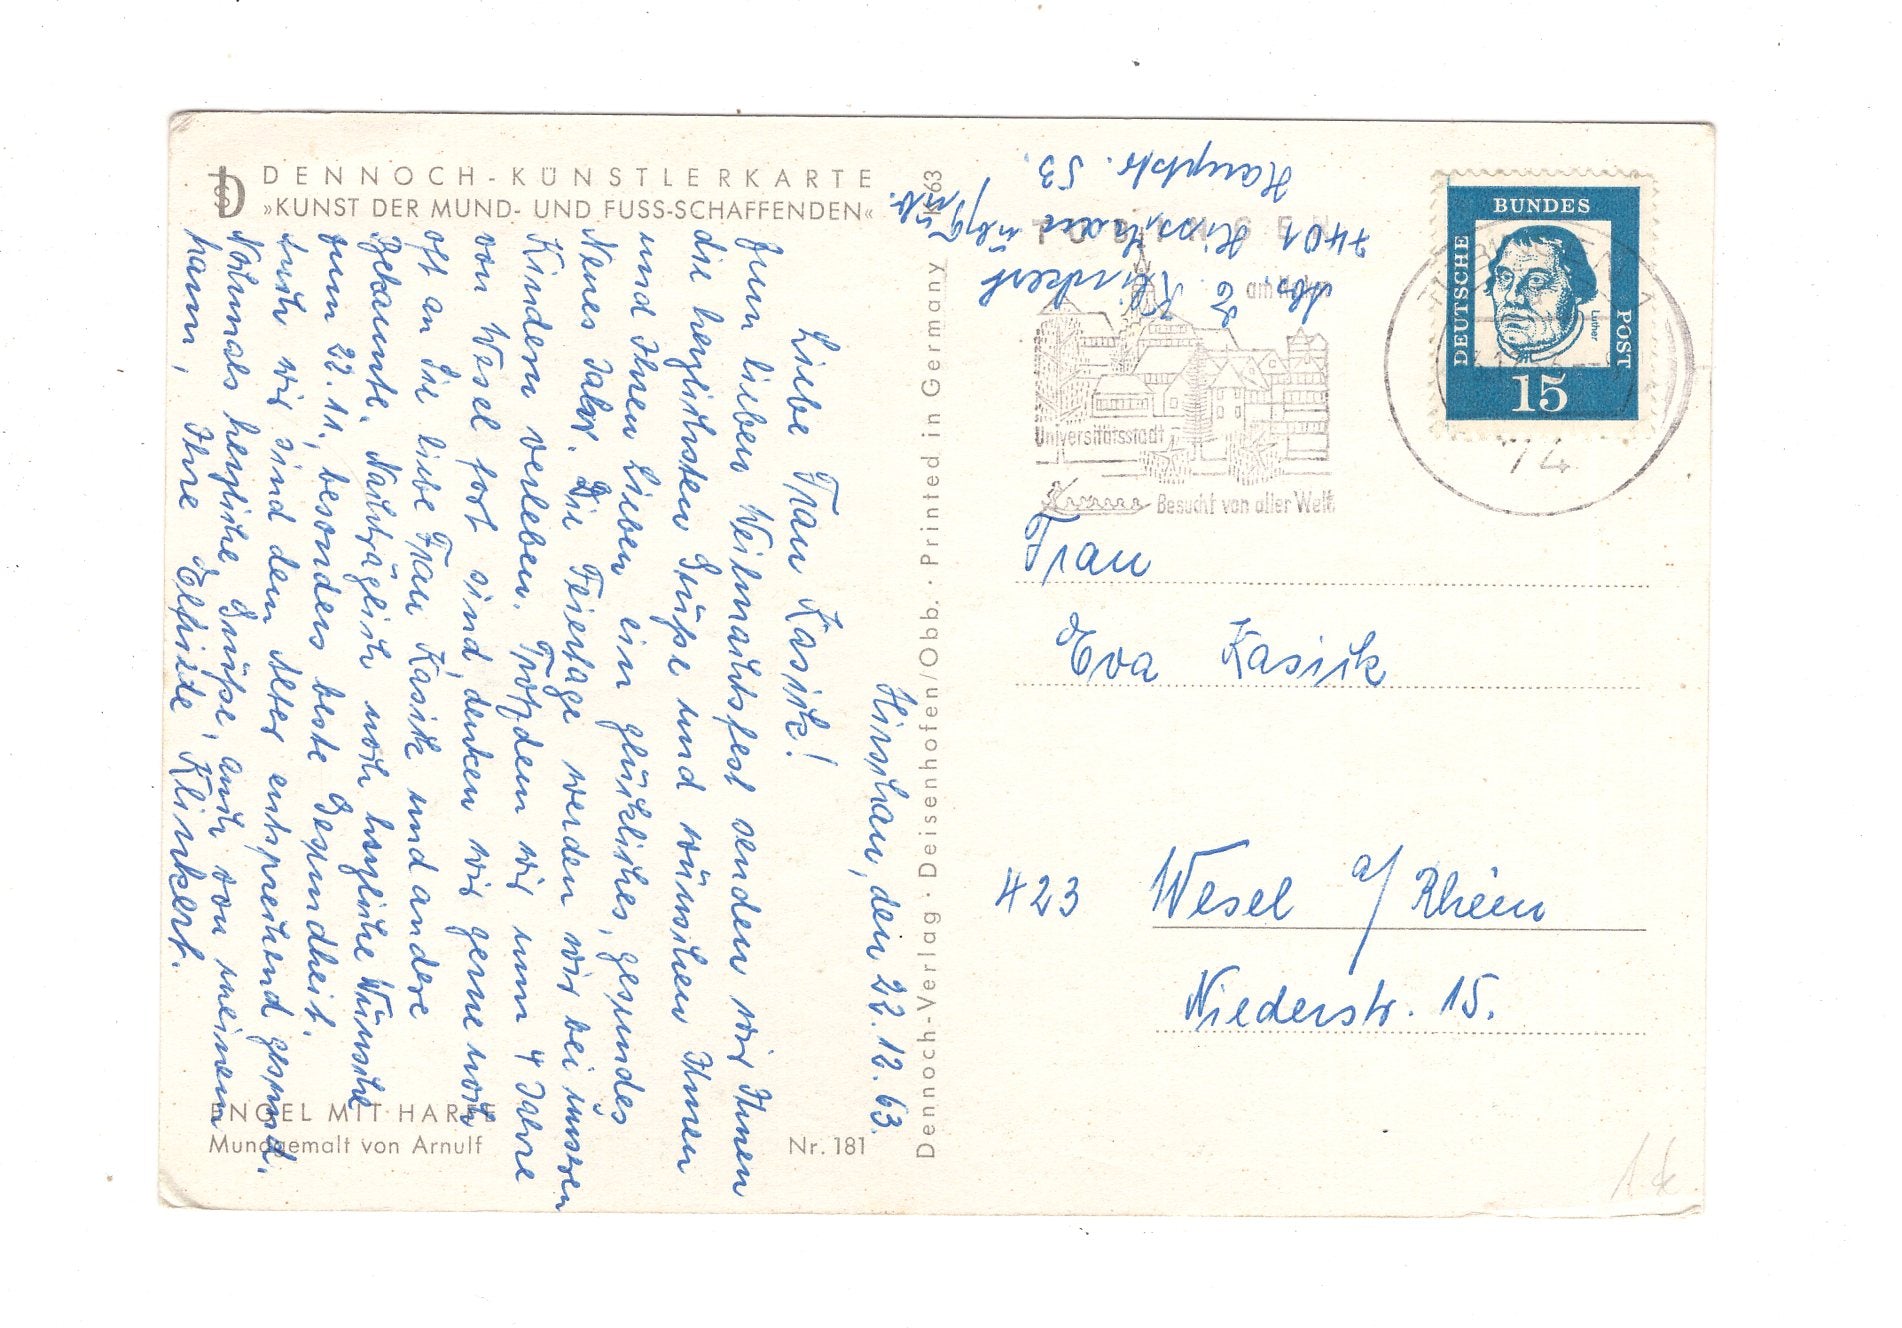 DENNOCH-KÜNSTLERKARTE
»KUNST DER MUND- UND FUSS-SCHAFFENDEN«
Hirschau, den 22.12.63.
Liebe Frau Kasik!
Zum lieben Weihnachtsfest senden wir Ihnen
die herzlichsten Grüße und wünschen Ihnen
und Ihren Lieben ein glückliches, gesundes
Neues Jahr. Die Feiertage werden wir bei unseren
Kindern verleben. Trotzdem wir nun 4 Jahre
von Wesel fort sind, denken wir gerne noch
oft an Sie liebe Frau Kasik und andere
Bekannte. Nachträglich noch herzliche Wünsche
zum 22.11, besonders beste Gesundheit.
Auch wir sind dem Alter entsprechend gesund.
Nochmals herzliche Grüße, auch von meinem
Mann, Ihre Elfriede Klinkert.
ENGEL MIT HARFE
Mundgemalt von Arnulf
Nr. 181
Dennoch-Verlag · Deisenhofen/Obb. · Printed in Germany K 63
Abs. E. Klinkert
7401 Hirschau üb/Tüb.
Hauptstr. 53.
TÜBINGEN
am Neckar
Universitätsstadt
Besucht von aller Welt
DEUTSCHE
BUNDES
POST
Luther
15
74
Frau
Eva Kasik
423 Wesel a/Rhein
Niederstr. 15.